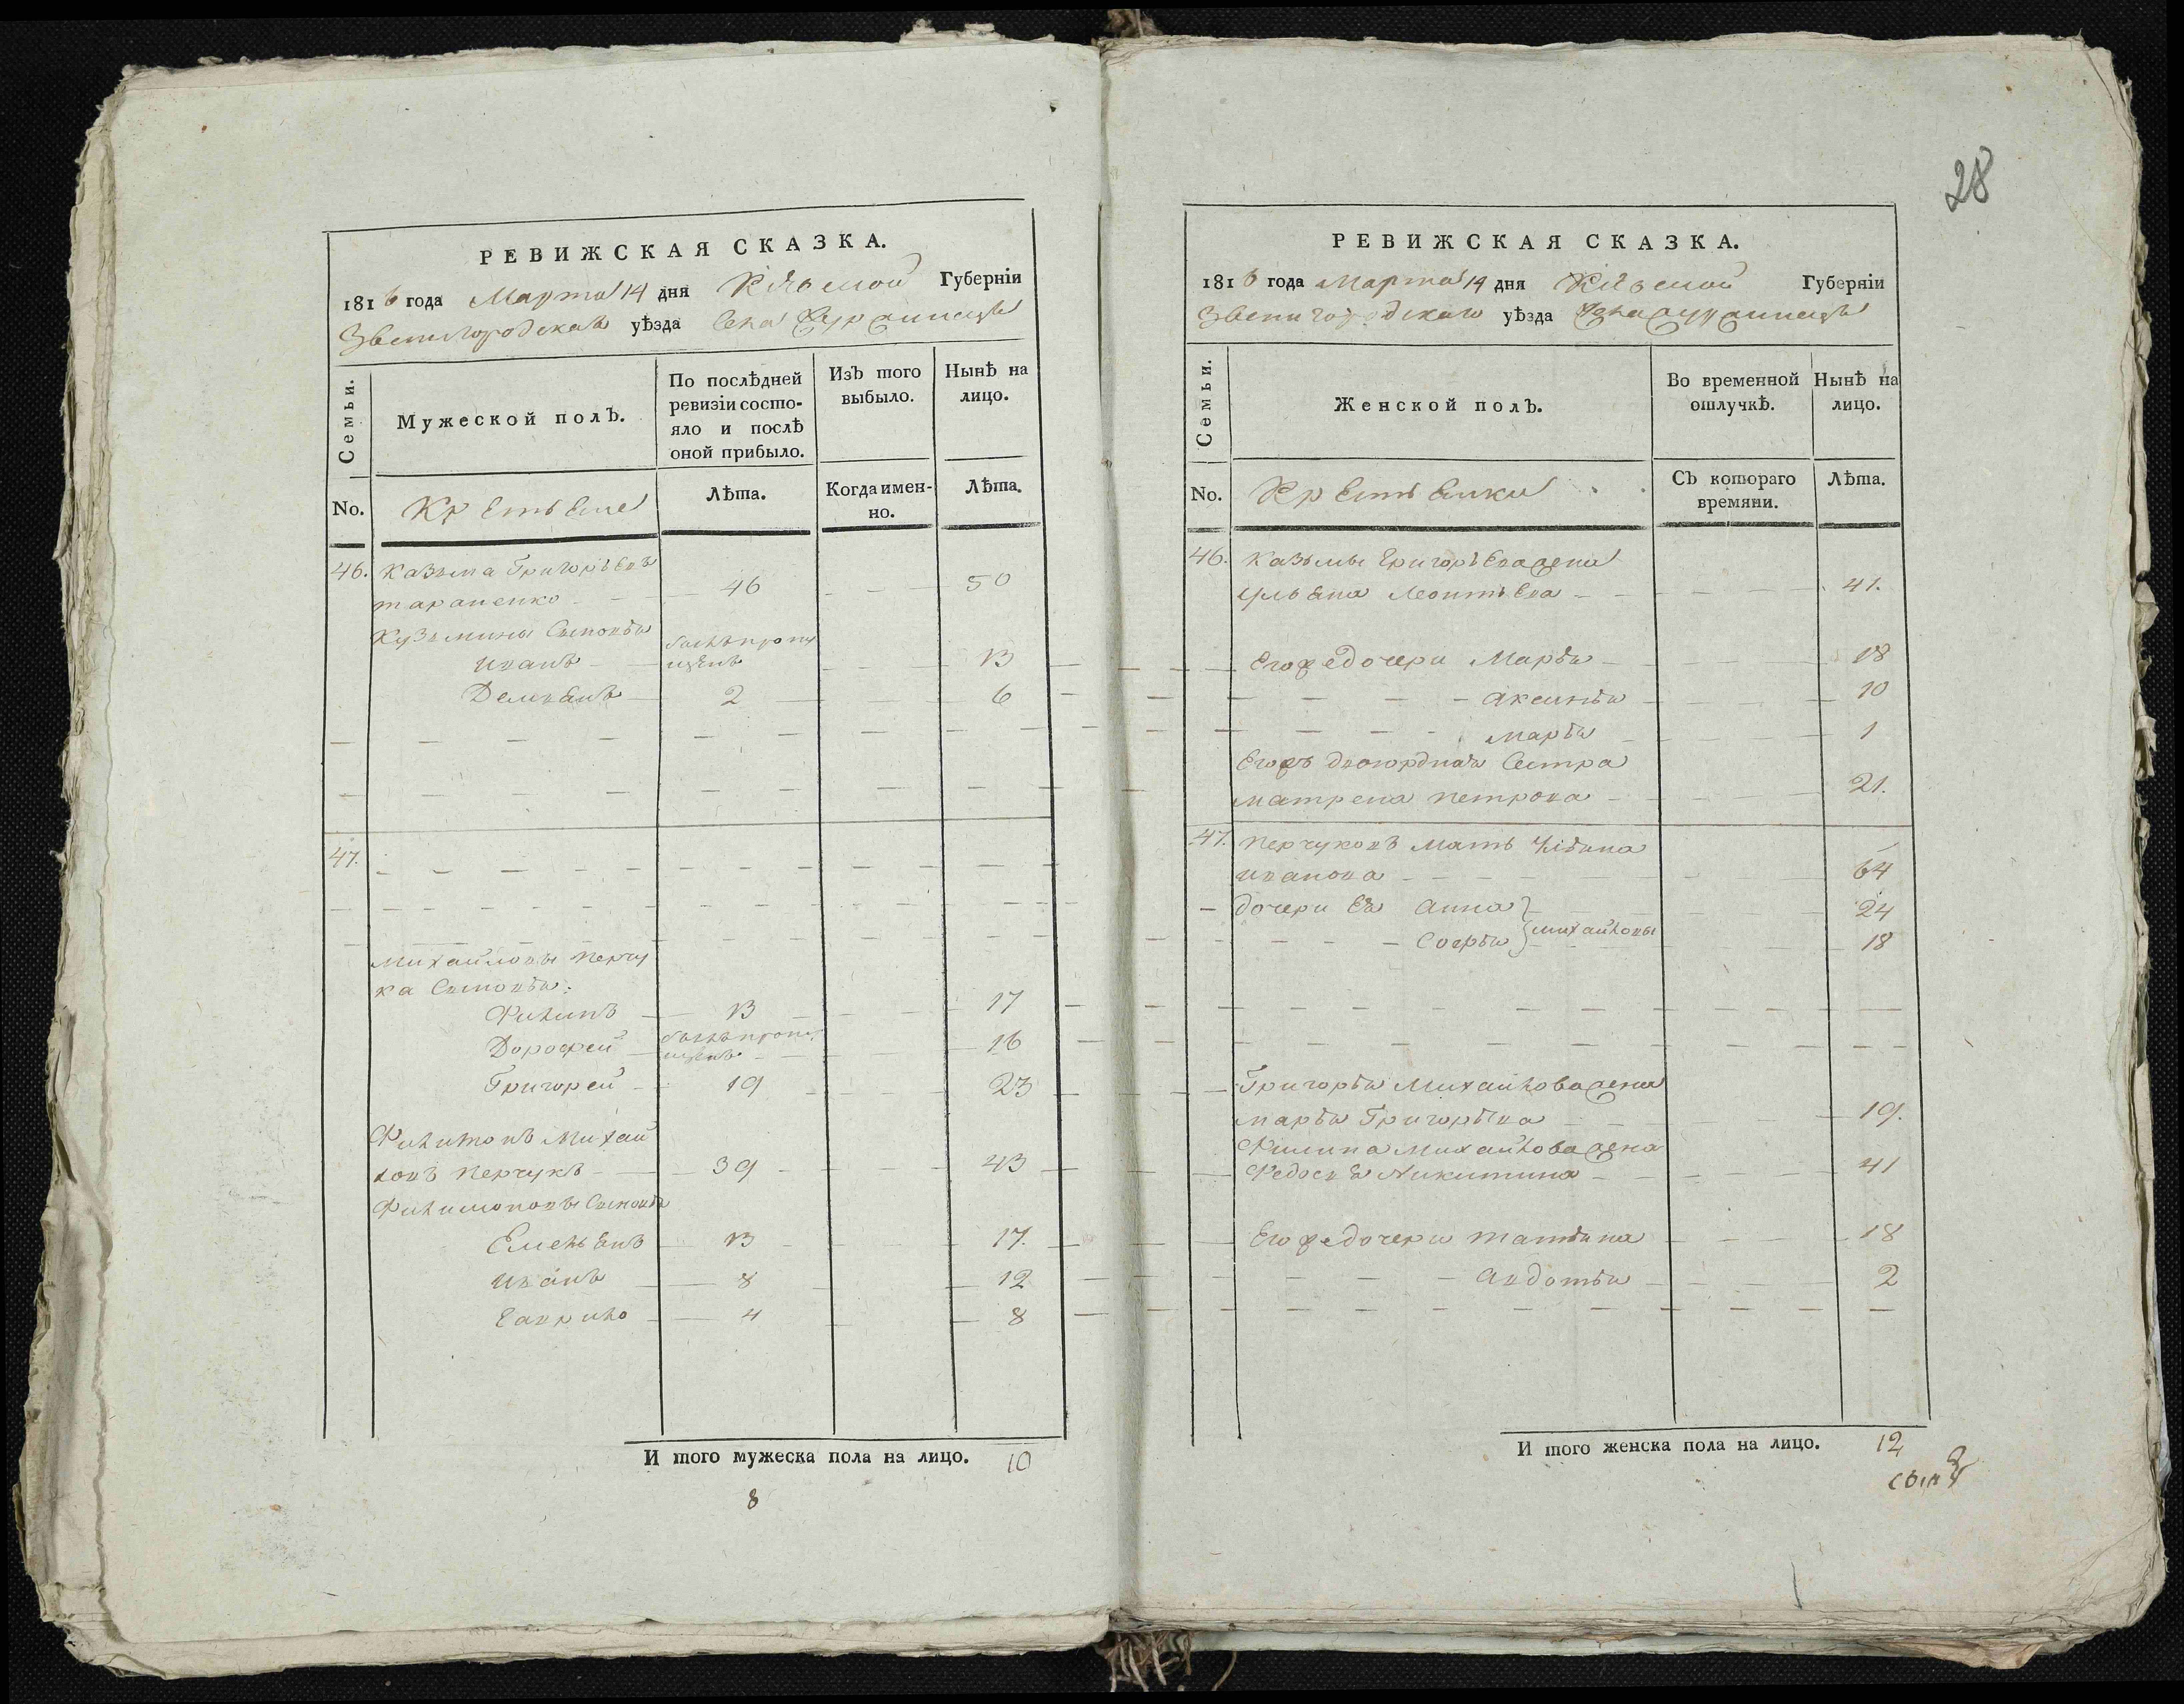 28
РЕВИЖСКАЯ СКАЗКА.
1816 года Марта 14 дня Кіевской Губерніи
Звенигородскаго уѣзда Села
Семьи.
Мужеской полЪ.
По послѣдней
ревизіи состо-
яло и послѣ
оной прибыло.
ИзЪ того
выбыло.
Нынѣ на
лицо.
No.
Крестьяне
Лѣта.
Когда имен-
но.
Лѣта.
46. Казьма Григорьевъ
тараненко 46 50
Кузьмины Сыновья
былъ пропу
Иванъ щенъ 13
Демьянъ 2 6
47.
Михайловы перчу
ка Сыновья:
Филипъ 13 17
былъ пропу
Дорофей щенъ 16
Григорей 19 23
Филимонъ Михай
ловъ перчукъ 39 43
Филимоновы Сыновья
Емельянъ 13 17.
Иванъ 8 12
Гаврило 4 8
И того мужеска пола на лицо. 10
8
РЕВИЖСКАЯ СКАЗКА.
1816 года Марта 14 дня Кіевской Губерніи
Звенигородскаго уѣзда Села
Семьи.
Женской полЪ.
Во временной
отлучкѣ.
Нынѣ на
лицо.
No.
Крестьянки
СЪ котораго
времяни.
Лѣта.
46. Казьмы Григорьева жена
Ульяна Леонтьева 41.
Егоже дочери Марья 18
Аксинья 10
Марья 1
Егожъ двоюрдная Сестра
матрена петрова 21.
47. перчуковъ мать
иванова 64
дочери Ея Анна 24
михайловы
Софья 18
Григорья Михайлова жена
марья Григорьева 19.
Филипа Михайлова жена
Федосья Никитина 41
Егоже дочери татьяна 18
Авдотья 2
И того женска пола на лицо. 12